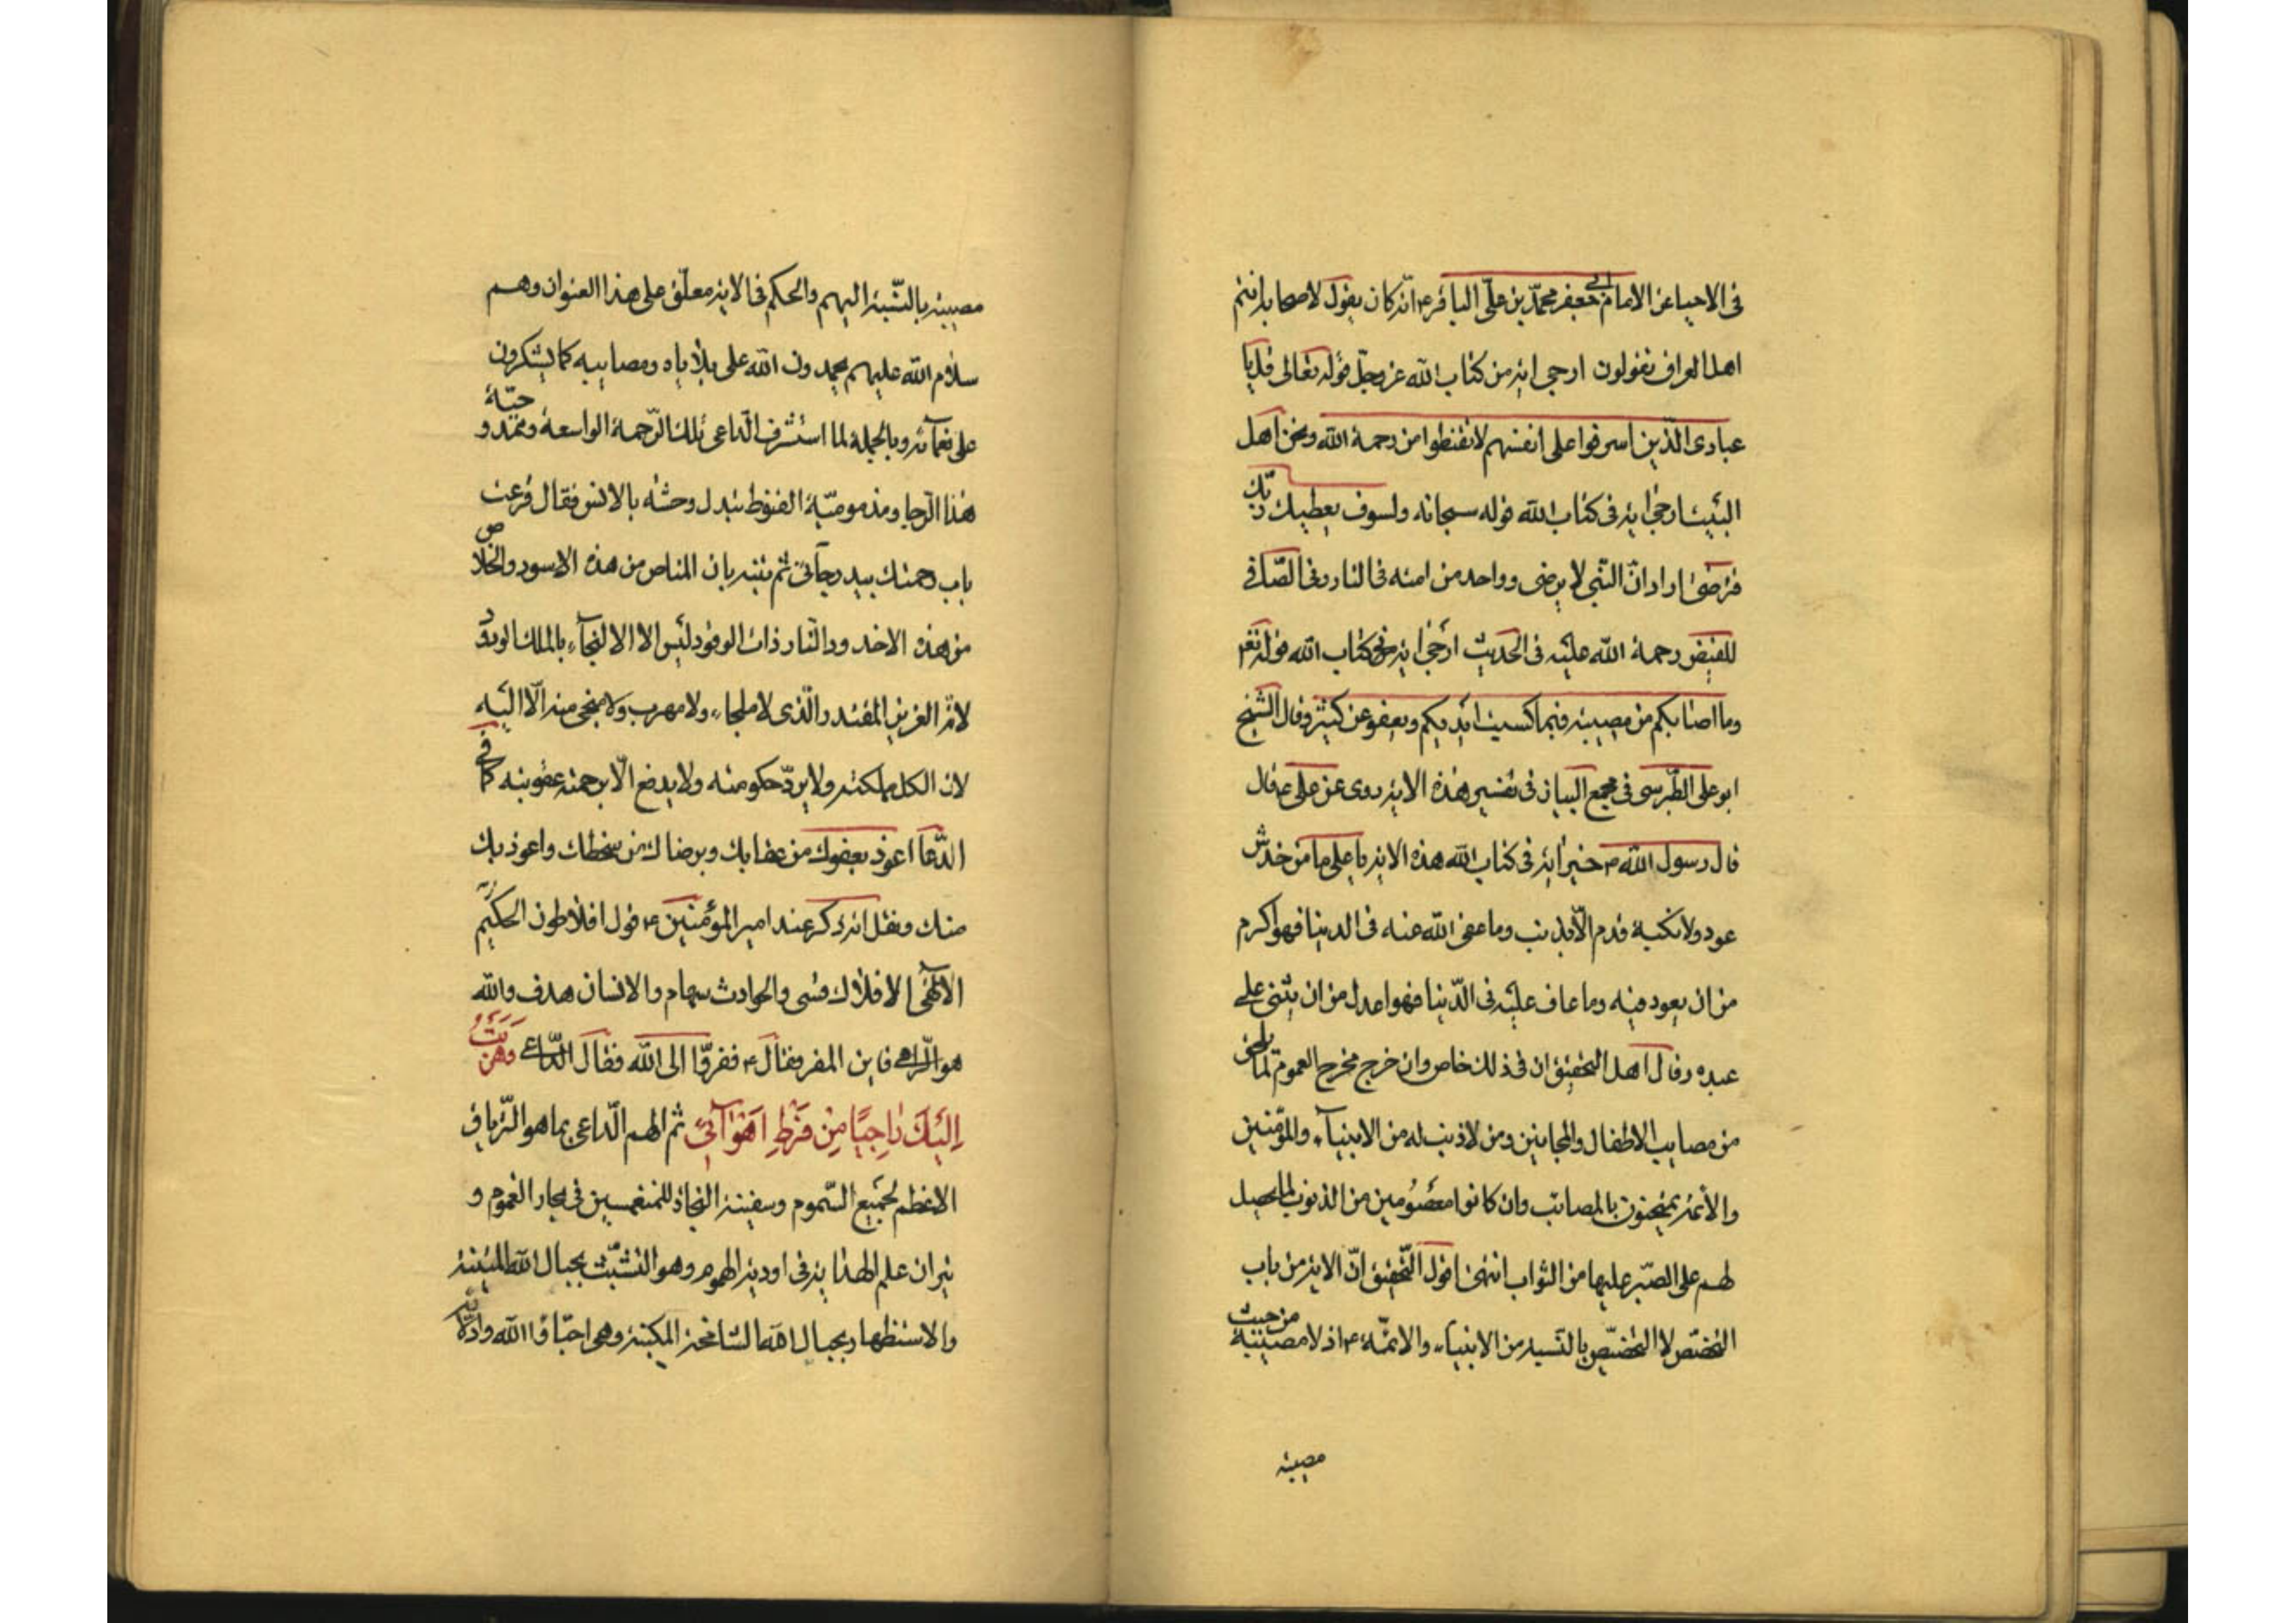 فى الاحياء عن الامام ابى جعفر محمد بن على الباقر ع انه كان يقول لاصحابه انتم
اهل العراق تقولون ارجى اية من كتاب الله عز وجل قوله تعالى قل يا
عبادى الذين اسرفوا على انفسهم لا تقنطوا من رحمة الله ونحن اهل
البيت ارجى اية فى كتاب الله قوله سبحانه ولسوف يعطيك ربك
فترضى اراد ان النبى لا يرضى وواحد من امته فى النار وفى الصافى
للفيض رحمة الله عليه فى الحديث ارجى اية فى كتاب الله قوله تعالى
وما اصابكم من مصيبة فبما كسبت ايديكم ويعفو عن كثير وقال الشيخ
ابو على الطبرسى فى مجمع البيان فى تفسير هذه الاية روى عن على ع قال
قال رسول الله ص خير اية فى كتاب الله هذه الاية يا على ما من خدش
عود ولا نكبة قدم الا بذنب وما عفى الله عنه فى الدنيا فهو اكرم
من ان يعود فيه وما عاقب عليه فى الدنيا فهو اعدل من ان يثنى على
عبده وقال اهل التحقيق ان فى ذلك خاص وان خرج مخرج العموم لما يلحق
من مصايب الاطفال والمجانين ومن لا ذنب له من الانبياء والمؤمنين
والائمة يمتحنون بالمصائب وان كانوا معصومين من الذنوب لما يحصل
لهم على الصبر عليها من الثواب انتهى اقول التحقيق ان الاية من باب
التخصص لا التخصيص بالنسبة من الانبياء والائمة ع اذ لا مصيبة من حيث
مصيبة
مصيبة بالنسبة اليهم والحكم فى الاية معلق على هذا العنوان وهم
سلام الله عليهم يحمدون الله على بلاياه ومصايبه كما يشكرون
على نعمائه وبالجملة لما استشرف الداعى تلك الرحمة الواسعة وممدوحية
هذا الرجاء ومذمومية القنوط تبدل وحشته بالانس فقال قرعت
باب رحمتك بيد رجائى ثم يتنبه بان المناص من هذه الاسود والخلاص
من هذه الاخدود والنار ذات الوقود ليس الا الالتجاء بالملك الودود
لانه العزيز المقتدر والذى لا ملجاء ولا مهرب ولا منجى منه الا اليه
لان الكل مملكته ولا يرد حكومته ولا يدفع الا برحمته عقوبته كما فى
الدعاء اعوذ بعفوك من عقابك وبرضاك من سخطك واعوذ بك
منك ونقل انه ذكر عند امير المؤمنين ع قول افلاطون الحكيم
الالهى الافلاك قسى والحوادث سهام والانسان هدف والله
هو الرامى فاين المفر فقال ع ففروا الى الله فقال الداعى وهربت
اِلَيْكَ رَاجِيًا مِنْ فَرْطِ اَهْوَآئى ثم الهم الداعى بما هو الترياق
الاعظم لجميع السموم وسفينة النجاة للمنغمسين فى بحار الغموم و
نيران علم الهداية فى اودية الهموم وهو التشبث بحبال الله المتينة
والاستظهار بجبال الله الشامخة المكينة وهى احباؤا الله واوداؤه